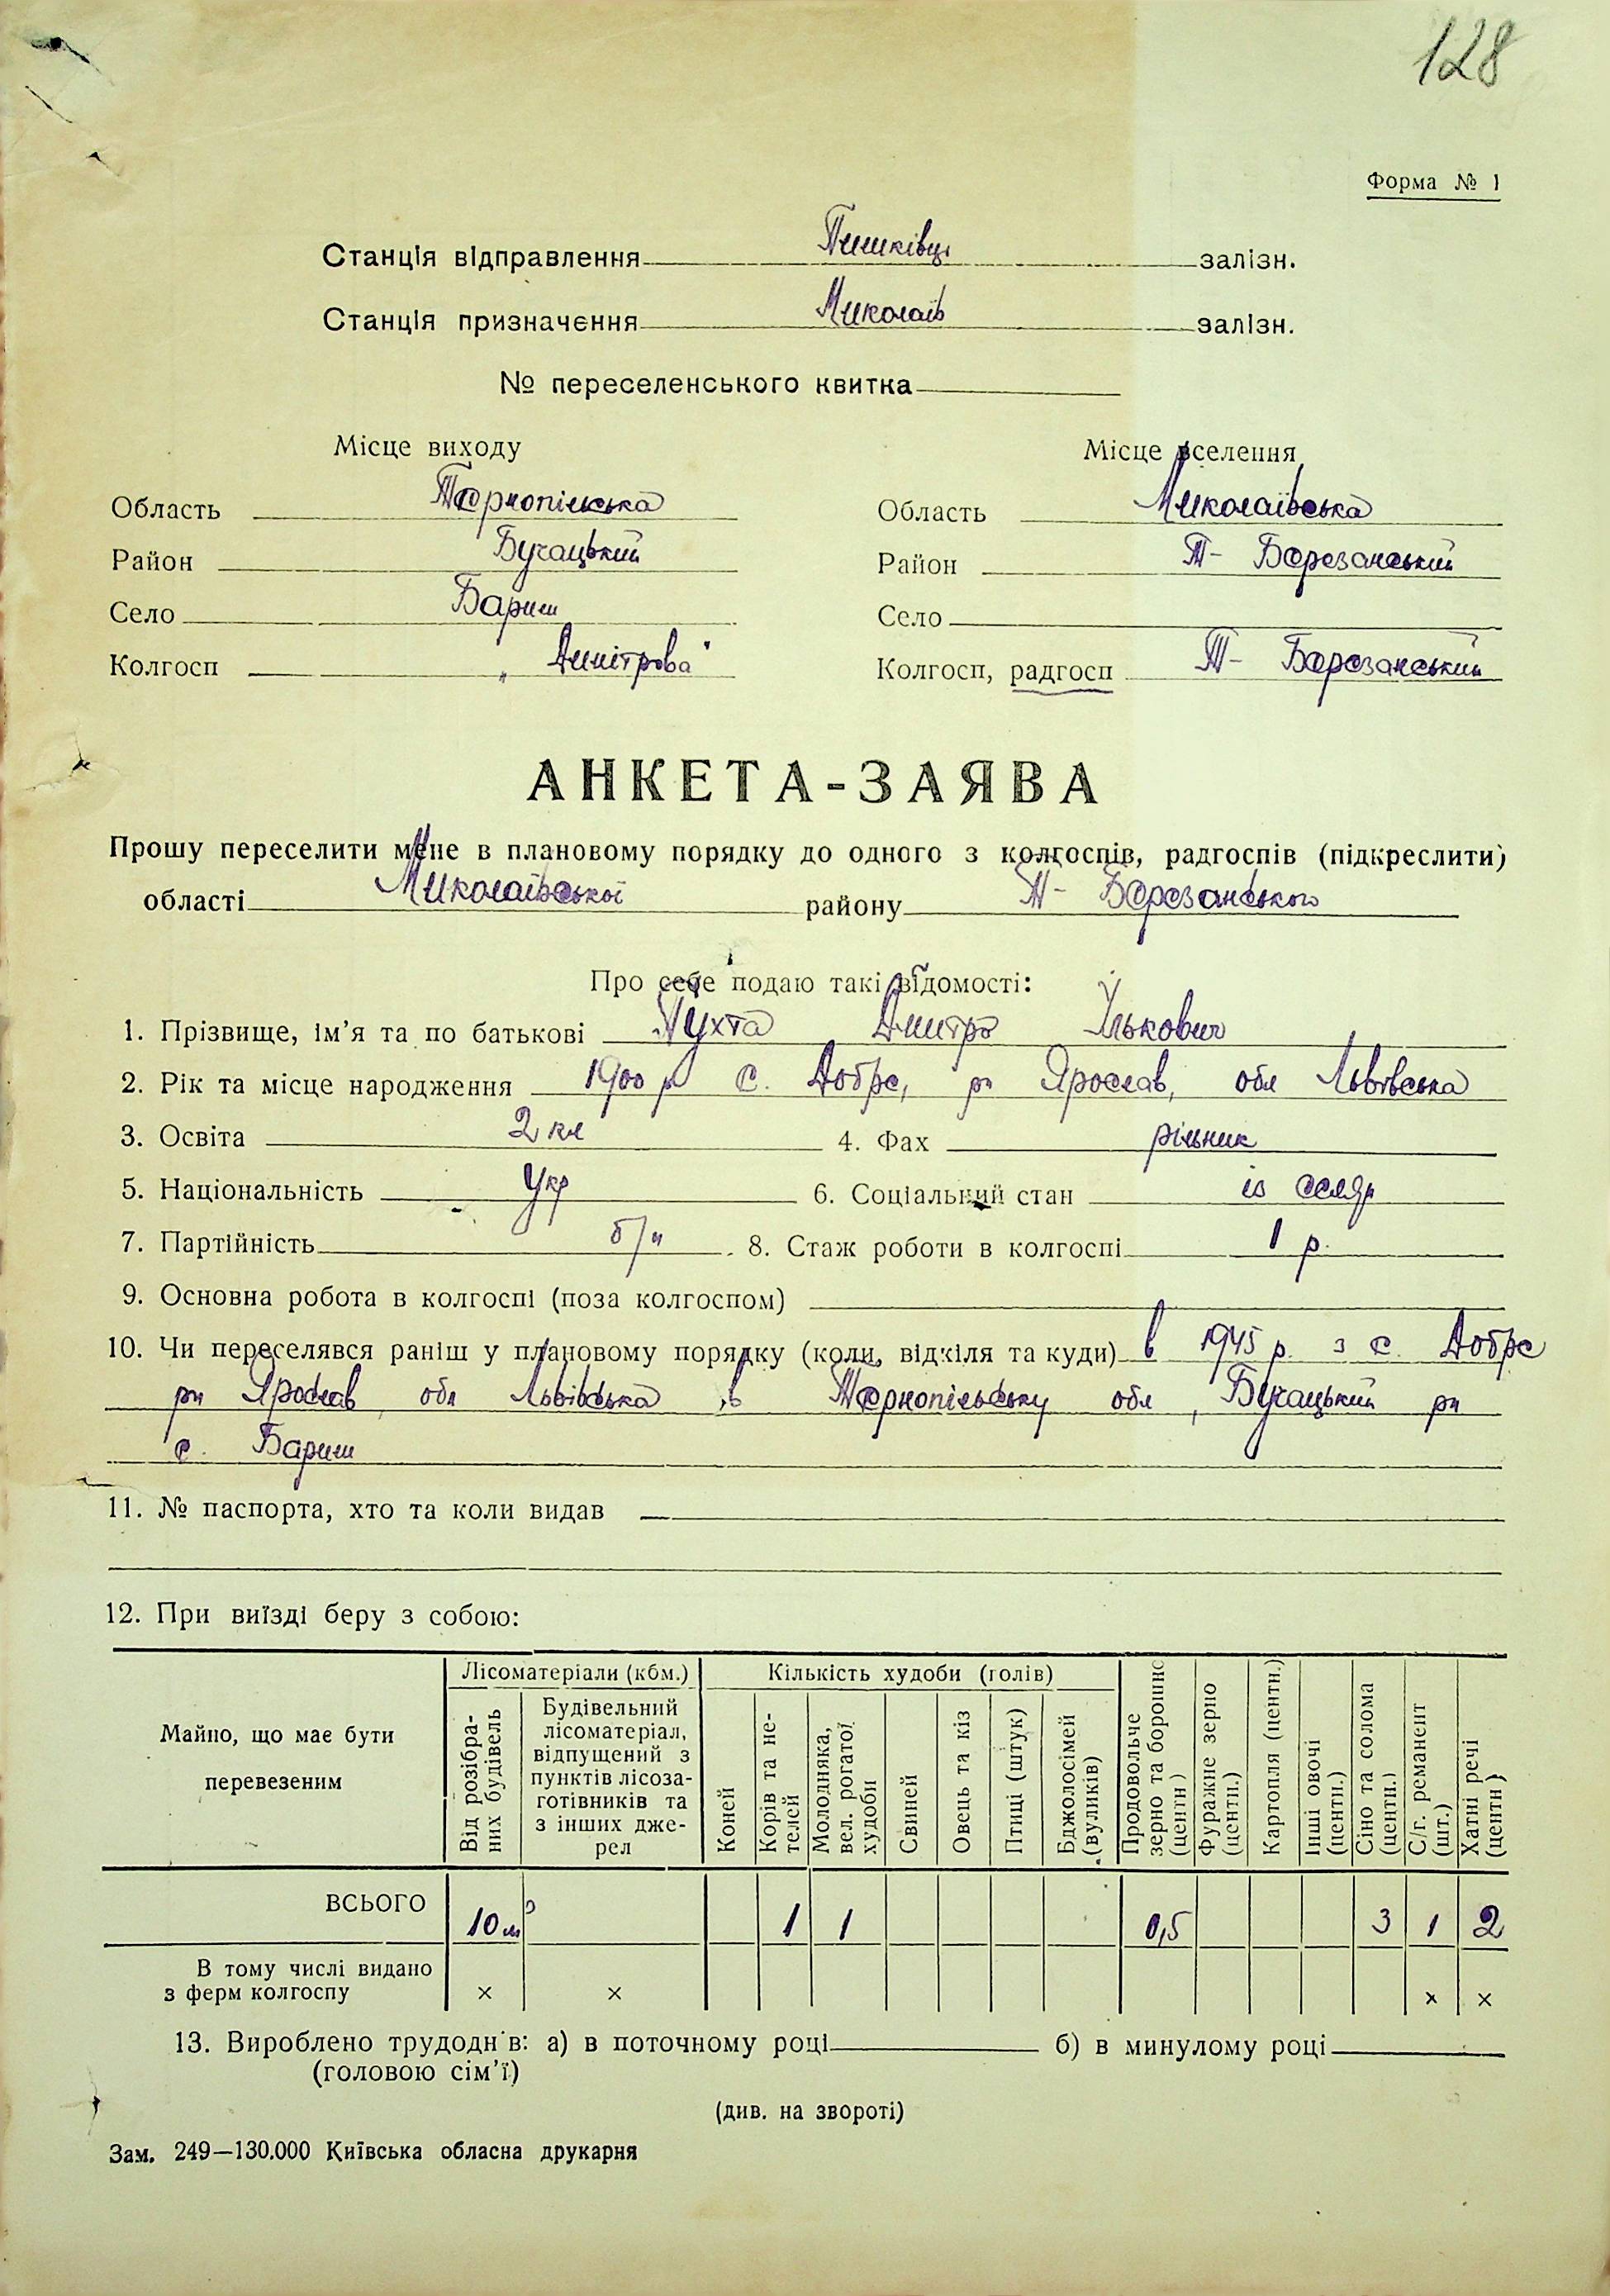 128
Форма № 1
Станція відправлення Пишківці залізн.
Станція призначення Миколаїв залізн.
№ переселенського квитка
Місце виходу Місце вселення
Область Тернопільська Область Миколаївська
Район Бучацький Район Т- Березанський
Село Бариш Село
Колгосп „Димітрова" Колгосп, радгосп Т- Березанський
АНКЕТА-ЗАЯВА
Прошу переселити мене в плановому порядку до одного з колгоспів, радгоспів (підкреслити)
області Миколаївської району Т- Березанського
Про себе подаю такі відомості:
1. Прізвище, ім'я та по батькові Пухта Дмитро Ількович
2. Рік та місце народження 1900 р с. Добре, рн Ярослав, обл Львівська
3. Освіта 2 кл 4. Фах рільник
5. Національність Укр 6. Соціальний стан із селяр
7. Партійність б/п 8. Стаж роботи в колгоспі 1 р.
9. Основна робота в колгоспі (поза колгоспом)
10. Чи переселявся раніш у плановому порядку (коли, відкіля та куди) в 1945 р. з с. Добре
рн Ярослав, обл Львівська в Тернопільську обл, Бучацький рн
с. Бариш
11. № паспорта, хто та коли видав
12. При виїзді беру з собою:
Майно, що має бути перевезеним
Лісоматеріали (кбм.)
Від розібраних будівель
Будівельний лісоматеріал, відпущений з пунктів лісозаготівників та з інших джерел
Кількість худоби (голів)
Коней
Корів та нетелей
Молодняка, вел. рогатої худоби
Свиней
Овець та кіз
Птиці (штук)
Бджолосімей (вуликів)
Продовольче зерно та борошно (центн)
Фуражне зерно (центн.)
Картопля (центн.)
Інші овочі (центн.)
Сіно та солома (центн.)
С/г. реманент (шт.)
Хатні речі (центн)
ВСЬОГО 10 м³ 1 1 0,5 3 1 2
В тому числі видано
з ферм колгоспу × × × ×
13. Вироблено трудоднів: а) в поточному році б) в минулому році
(головою сім'ї)
(див. на звороті)
Зам. 249—130.000 Київська обласна друкарня